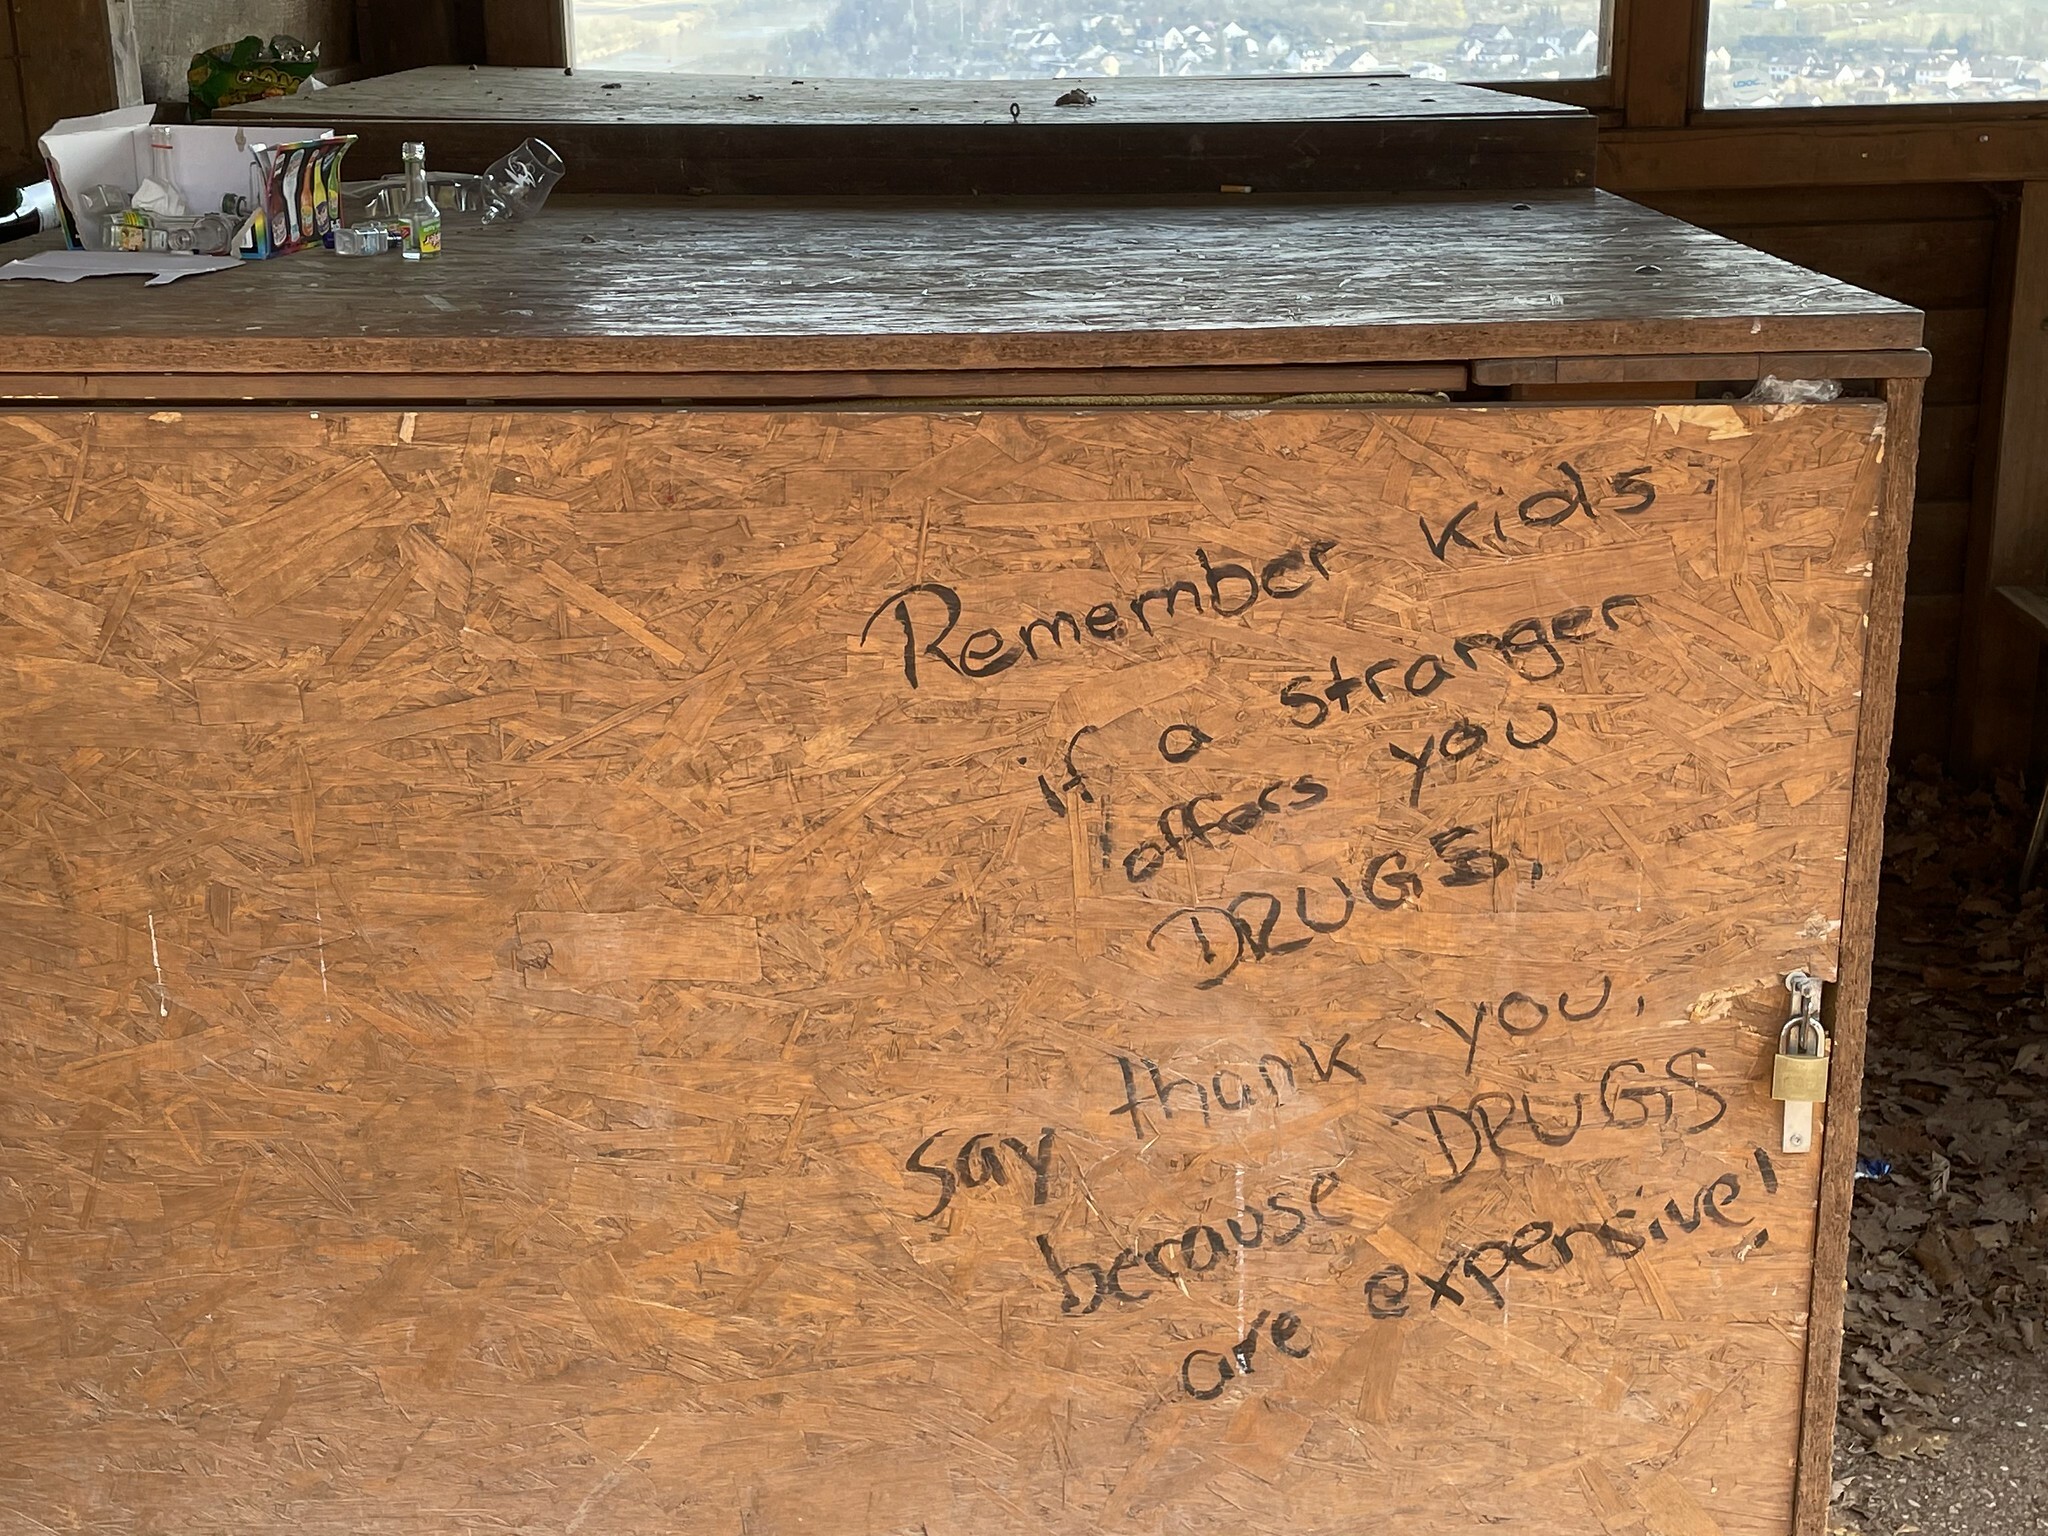 Remember kids.
if a stranger
offers you
DRUGS,
say thank you,
because DRUGS
are expensive!